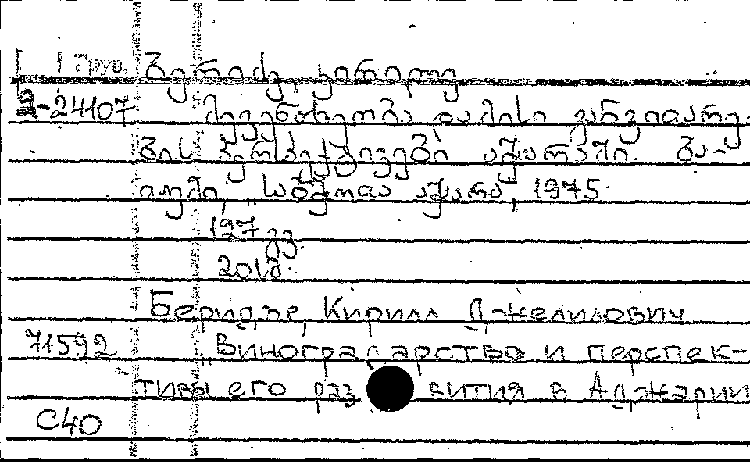 ბერიძე, კირილე
2-24107 მევენახეობა და მისი განვითარე-
ბის პერსპექტივები აჭარაში. ბა-
თუმი, "საბჭოთა აჭარა", 1975
127 გვ.
20კ.
Беридзе, Кирилл Джелилович
71592 "Виноградарство и перспек-
тивы его развития в Аджарии
С40